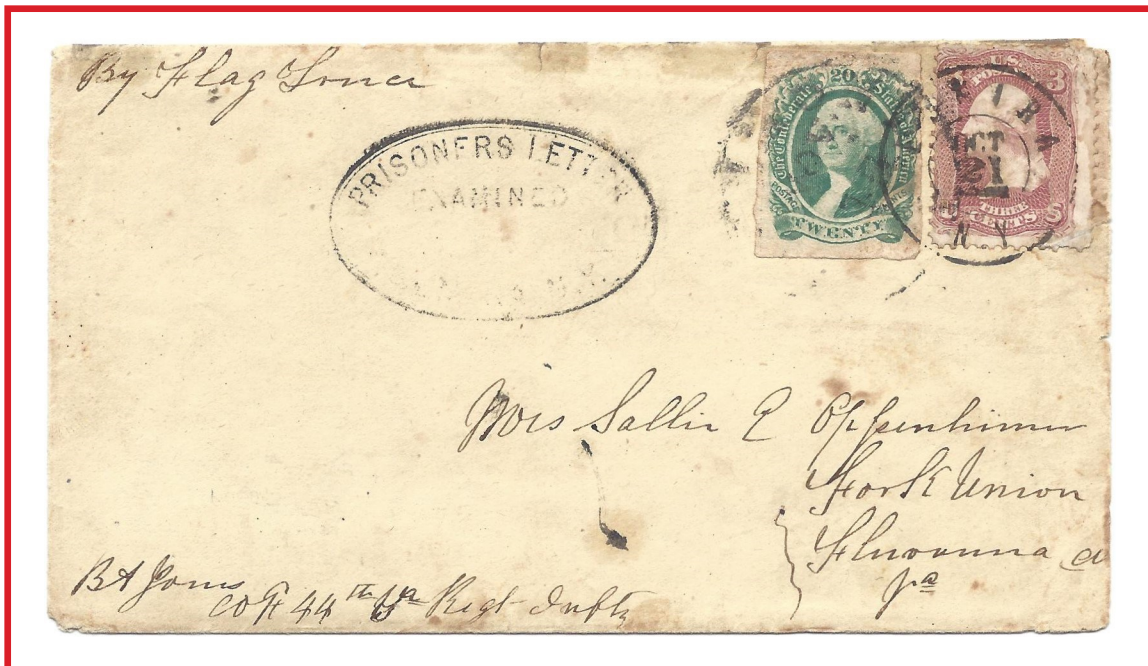 By Flag Truce
PRISONERS LETTER
EXAMINED
N.Y.
20
The Confederate States of America
POSTAGE
TWENTY
U.S. POSTAGE 3
THREE CENTS
OCT
21
N.Y.
Miss Sallie E Oppenhimer
Fork Union
Fluvanna Co
Va
B A Jones
CO F 44th Va Regt Inftr